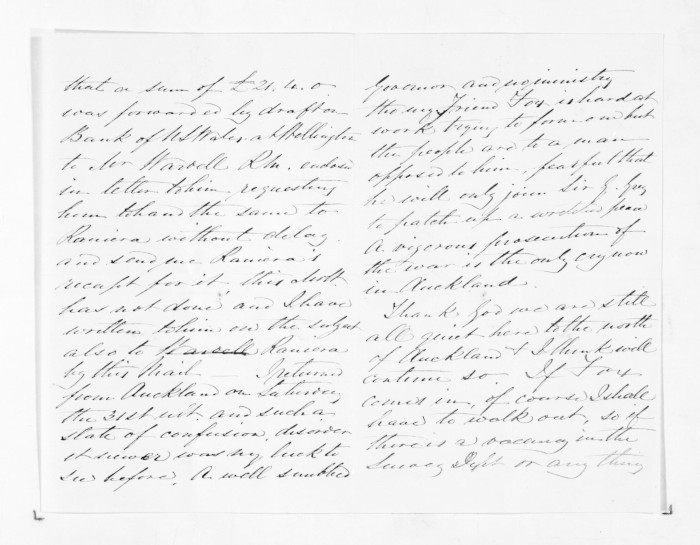 that a sum of £21.4.0
was forwarded by draft on
Bank of N S Wales at Wellington
to Mr Wardell R.M. enclosed
in letter to him requesting
him to hand the same to
Raniera without delay
and send me Raniera's
receipt for it. this
has not done and I have
written to him on the subject
also to Raniera
by this Mail — I returned
from Auckland on Saturday
the 31st ult. and such a
state of confusion, disorder
it never was my luck to
see before. A well snubbed
Governor and no ministry
tho my Friend Fox is hard at
work trying to form one but
the people are to a man
opposed to him, fearful that
he will only join Sir G. Grey
to patch up a peace
A vigorous prosecution of
the war is the only cry now
in Auckland.
Thank God we are still
all quiet here to the north
of Auckland & I think will
continue so. If Fox
comes in, of course I shall
have to walk out, so if
there is a vacancy in the
Survey Dept or any thing